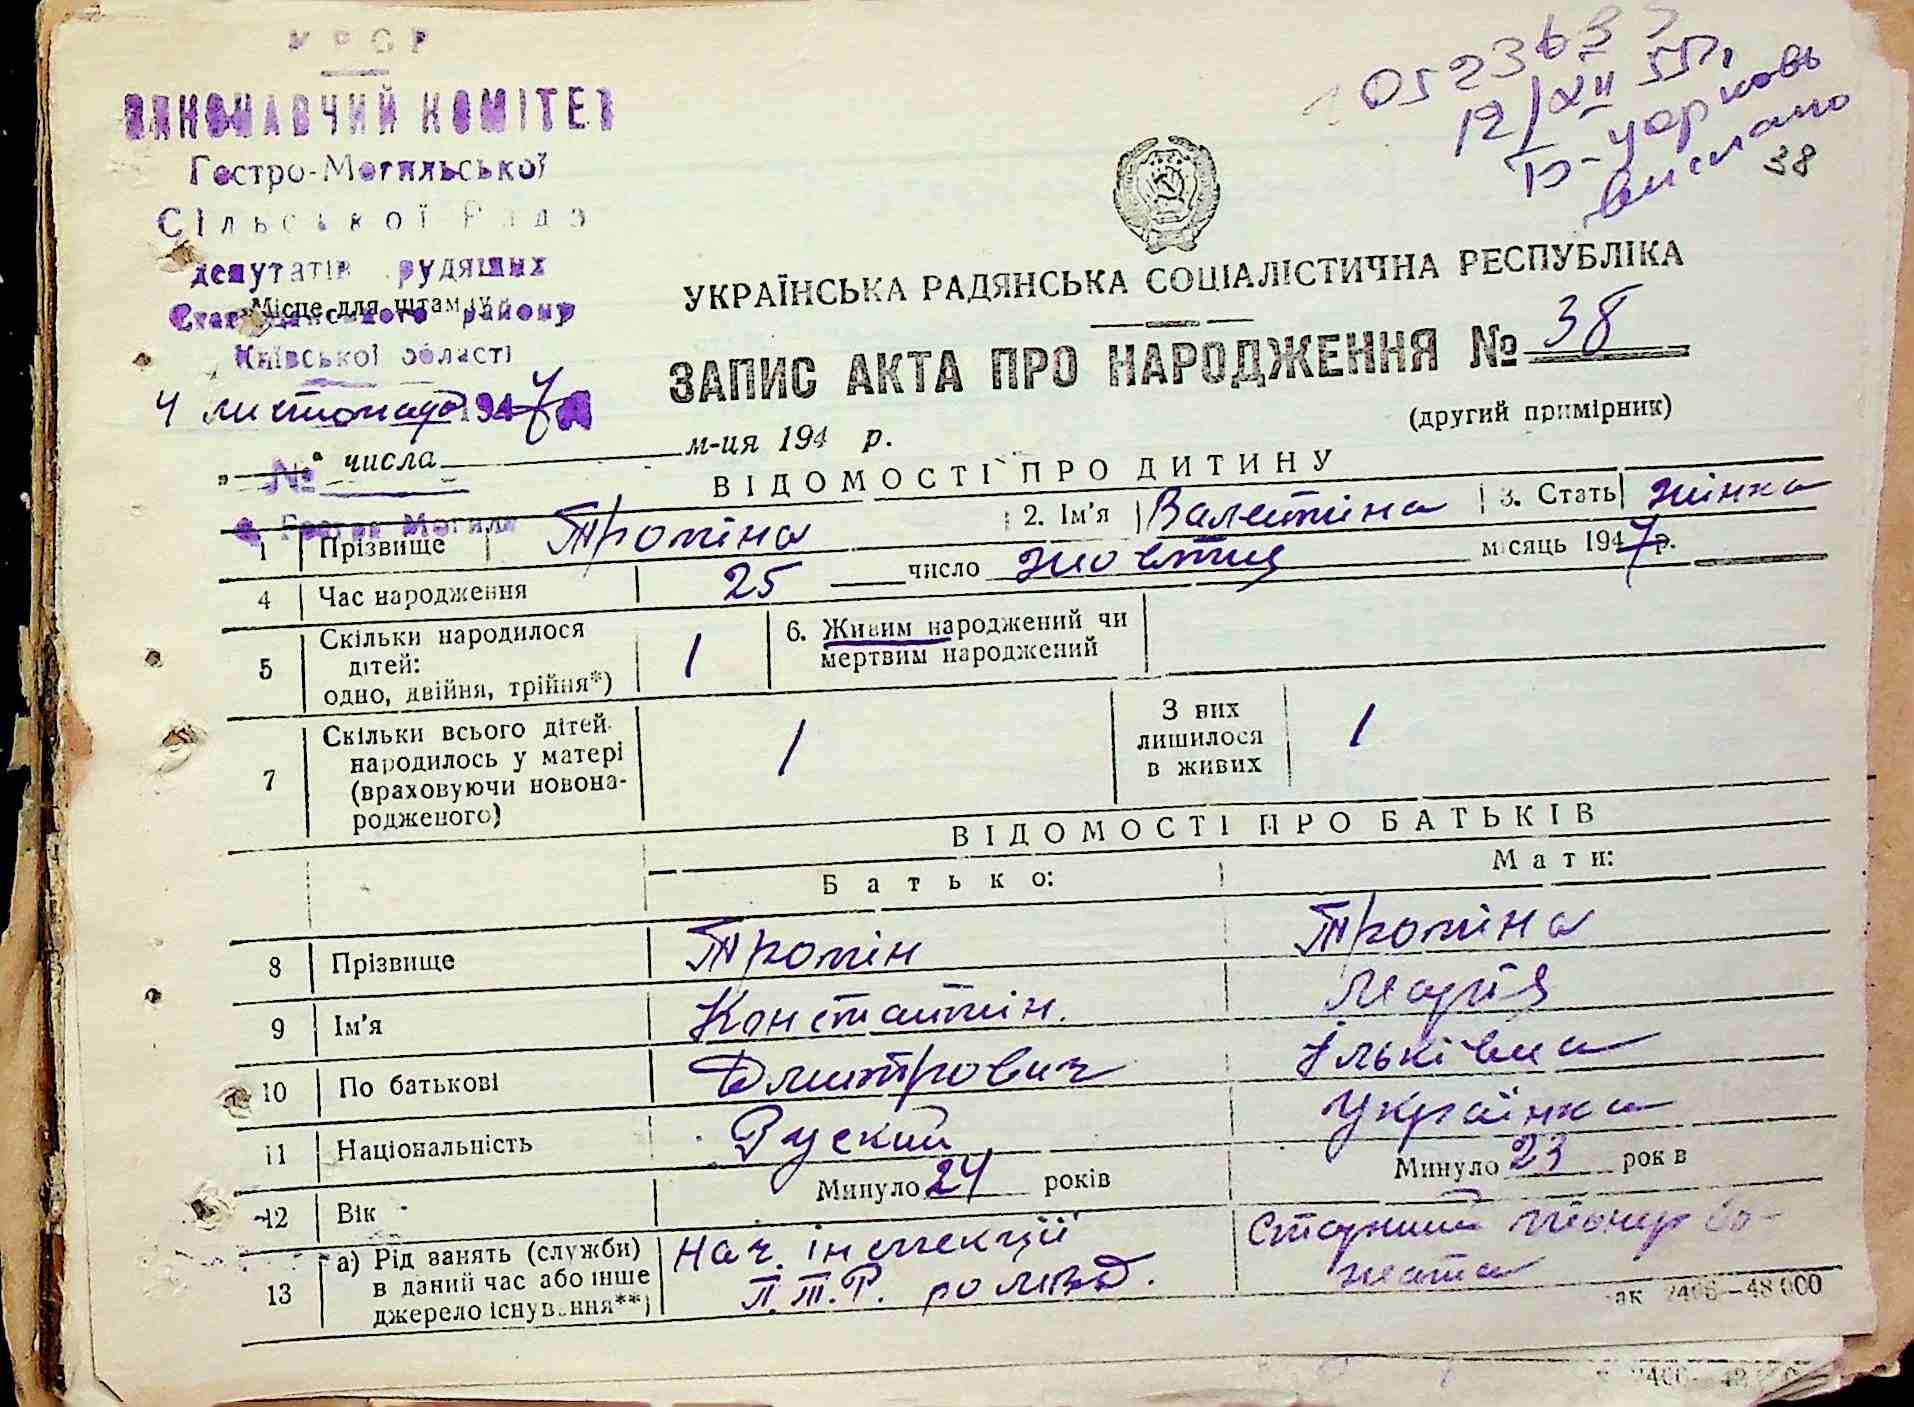 УРСР
ВИКОНАВЧИЙ КОМІТЕТ
Гостро-Могильської
Сільської Ради
депутатів трудящих
Місце для штампу
Ставищанського району
Київської області
4 листопада 1947 р.
№
с. Гостра Могила
0523637
12/XII 55 р.
Б-Церковь
вислано
38
УКРАЇНСЬКА РАДЯНСЬКА СОЦІАЛІСТИЧНА РЕСПУБЛІКА
ЗАПИС АКТА ПРО НАРОДЖЕННЯ № 38
(другий примірник)
„ “ числа м-ця 194 р.
ВІДОМОСТІ ПРО ДИТИНУ
1 Прізвище Тропіна 2. Ім'я Валентина 3. Стать жінка
4 Час народження 25 число жовтня місяць 1947 р.
5 Скільки народилося дітей: одно, двійня, трійня*) 1 6. Живим народжений чи мертвим народжений
7 Скільки всього дітей народилось у матері (враховуючи новонародженого) 1 З них лишилося в живих 1
ВІДОМОСТІ ПРО БАТЬКІВ
Батько: Мати:
8 Прізвище Тропін Тропіна
9 Ім'я Константин. Марія
10 По батькові Дмитрович Ільківна
11 Національність Руский Українка
12 Вік Минуло 24 років Минуло 23 років
13 а) Рід занять (служби) в даний час або інше джерело існування**) Нач. інспекції П.Т.Р. Старший піонер во-
жата
Зак 2400—48 000